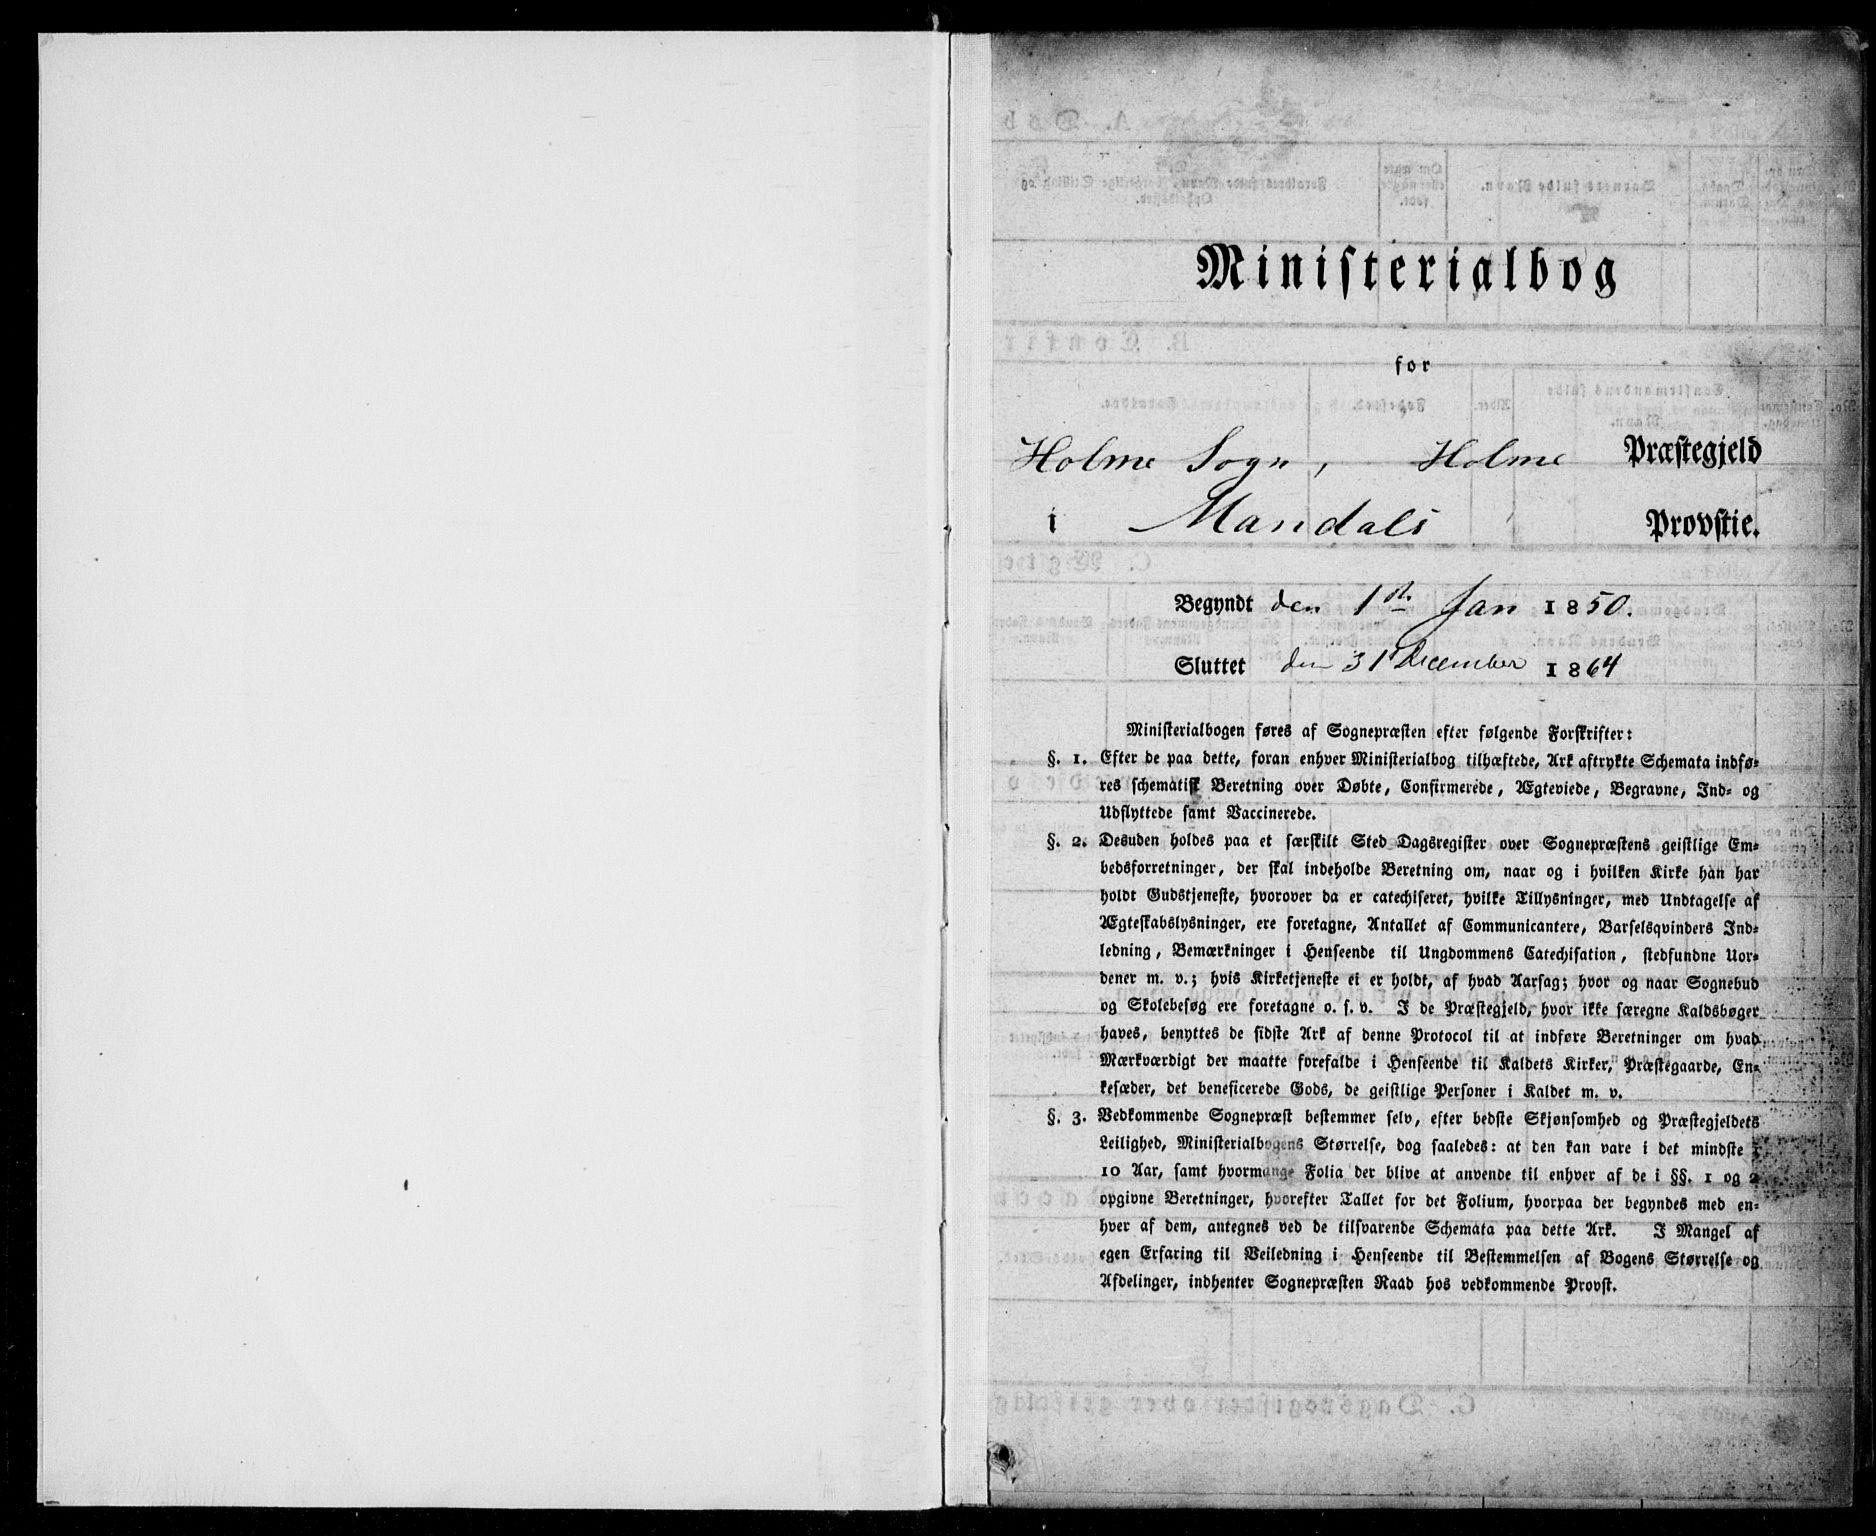 Ministerialbog
for
Holme Sogn, Holme Præstegjeld
i Mandals Provstie.
Begyndt den 1ste Jan 1850.
Sluttet den 31 December 1864
Ministerialbogen føres af Sognepræsten efter følgende Forskrifter:
§. 1. Efter de paa dette, foran enhver Ministerialbog tilhæftede, Ark aftrykte Schemata indfø=
res schematisk Beretning over Døbte, Confirmerede, Ægteviede, Begravne, Ind= og
Udflyttede samt Vaccinerede.
§. 2. Desuden holdes paa et særskilt Sted Dagsregister over Sognepræstens geistlige Em=
bedsforretninger, der skal indeholde Beretning om, naar og i hvilken Kirke han har
holdt Gudstjeneste, hvorover da er catechiseret, hvilke Tillysninger, med Undtagelse af
Ægteskabslysninger, ere foretagne, Antallet af Communicantere, Barselqvinders Ind=
ledning, Bemærkninger i Henseende til Ungdommens Catechisation, stedfundne Uor=
dener m. v.; hvis Kirketjeneste ei er holdt, af hvad Aarsag; hvor og naar Sognebud
og Skolebesøg ere foretagne o. s. v. I de Præstegjeld, hvor ikke særegne Kaldsbøger
haves, benyttes de sidste Ark af denne Protocol til at indføre Beretninger om hvad
Mærkværdigt der maatte forefalde i Henseende til Kaldets Kirker, Præstegaarde, En=
kesæder, det beneficerede Gods, de geistlige Personer i Kaldet m. v.
§. 3. Vedkommende Sognepræst bestemmer selv, efter bedste Skjønsomhed og Præstegjeldets
Leilighed, Ministerialbogens Størrelse, dog saaledes: at den kan vare i det mindste i
10 Aar, samt hvormange Folia der blive at anvende til enhver af de i §§. 1 og 2
opgivne Beretninger, hvorefter Tallet for det Folium, hvorpaa der begyndes med en=
hver af dem, antegnes ved de tilsvarende Schemata paa dette Ark. I Mangel af
egen Erfaring til Veiledning i Henseende til Bestemmelsen af Bogens Størrelse og
Afdelinger, indhenter Sognepræsten Raad hos vedkommende Provst.